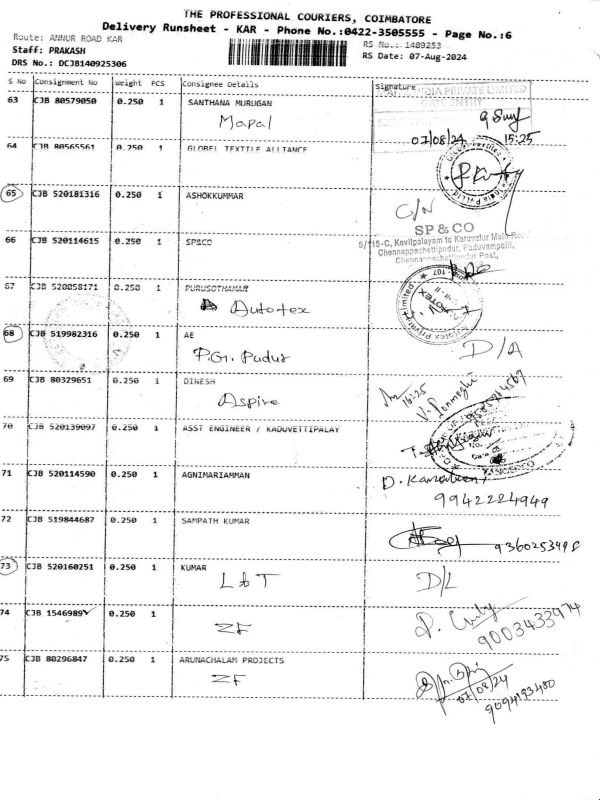 THE PROFESSIONAL COURIERS, COIMBATORE
Delivery Runsheet - KAR - Phone No.:0422-3505555 - Page No.:6
Route: ANNUR ROAD KAR
RS No.: 1409253
Staff: PRAKASH
RS Date: 07-Aug-2024
DRS No.: DCJB140925306
S No Consignment No Weight PCS Consignee Details Signature
INDIA PRIVATE LIMITED
GATE ENTRY
63 CJB 80579050 0.250 1 SANTHANA MURUGAN
Mapal
07/08/24 15:25
64 CJB 80565561 0.250 1 GLOBEL TEXTILE ALLIANCE
65 CJB 520181316 0.250 1 ASHOKKUMMAR
C/N
66 CJB 520114615 0.250 1 SP&CO
SP & CO
5/115-C, Kovilpalayam to Karuvalur Main Road
Chennappachettipudur, Paduvampalli,
Chennappachettipudur Post,
67 CJB 520858171 0.250 1 PURUSOTHAMAR
Autotex
68 CJB 519982316 0.250 1 AE
P.G. Pudur
D/A
69 CJB 80329651 0.250 1 DINESH
Aspire
16:25
70 CJB 520139097 0.250 1 ASST ENGINEER / KADUVETTIPALAY
71 CJB 520114590 0.250 1 AGNIMARIAMMAN
9942224949
72 CJB 519844687 0.250 1 SAMPATH KUMAR
73 CJB 520160251 0.250 1 KUMAR
L&T
D/L
74 CJB 1546989 0.250 1
ZF
9003433974
75 CJB 80296847 0.250 1 ARUNACHALAM PROJECTS
ZF
07/08/24
9094193480